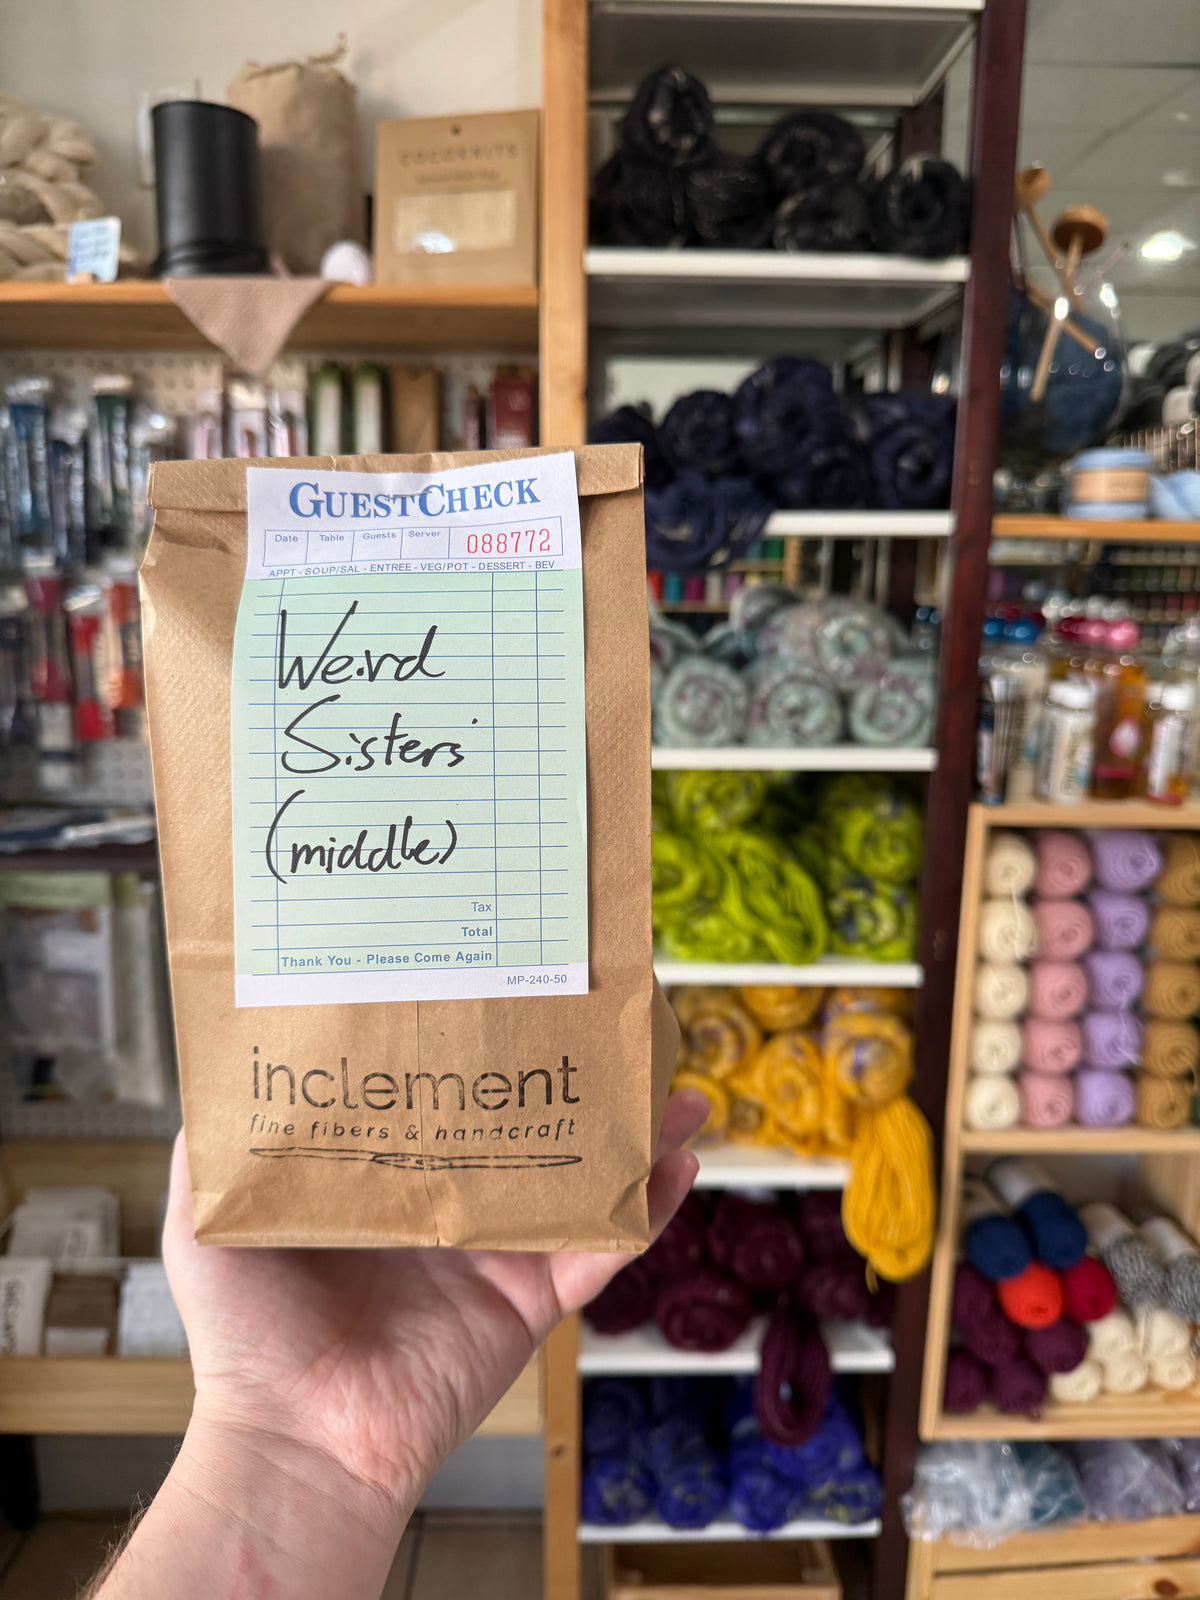 COCOKNITS
GUESTCHECK
Date Table Guests Server 088772
APPT - SOUP/SAL - ENTREE - VEG/POT - DESSERT - BEV
Weird
Sisters
(middle)
Tax
Total
Thank You - Please Come Again
MP-240-50
inclement
fine fibers & handcraft